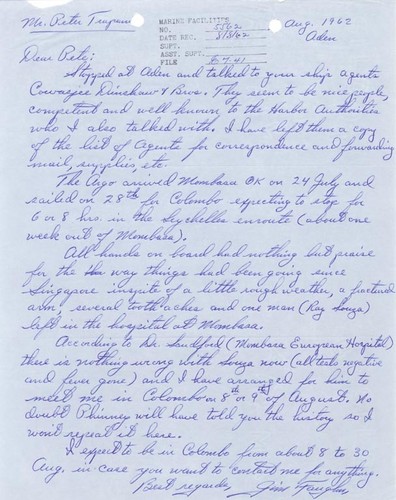 Mr. Peter Trapani
MARINE FACILITIES
NO. 5562
DATE REC. 8/3/62
SUPT.
ASST. SUPT.
FILE 87.41
Aug. 1962
Aden
Dear Pete:
Stopped at Aden and talked to your ship agents
Cowasjee Dinshaw & Bros. They seem to be nice people,
competent and well known to the Harbor Authorities
who I also talked with. I have left them a copy
of the list of Agents for correspondence and forwarding
mail, supplies, etc.
The Argo arrived Mombasa OK on 24 July and
sailed on 28th for Colombo expecting to stop for
6 or 8 hrs. in the Seychelles enroute (about one
week out of Mombasa).
All hands on board had nothing but praise
for the way things had been going since
Singapore inspite of a little rough weather, a fractured
arm, several tooth aches and one man (Ray Souza)
left in the hospital at Mombasa.
According to Dr. Lundford (Mombasa European Hospital)
there is nothing wrong with Souza now (all tests negative
and fever gone) and I have arranged for him to
meet me in Colombo on 8th or 9th of August. No
doubt Phinney will have told you the history so I
won't repeat it here.
I expect to be in Colombo from about 8 to 30
Aug. in case you want to contact me for anything.
Best regards, Jim Faughn